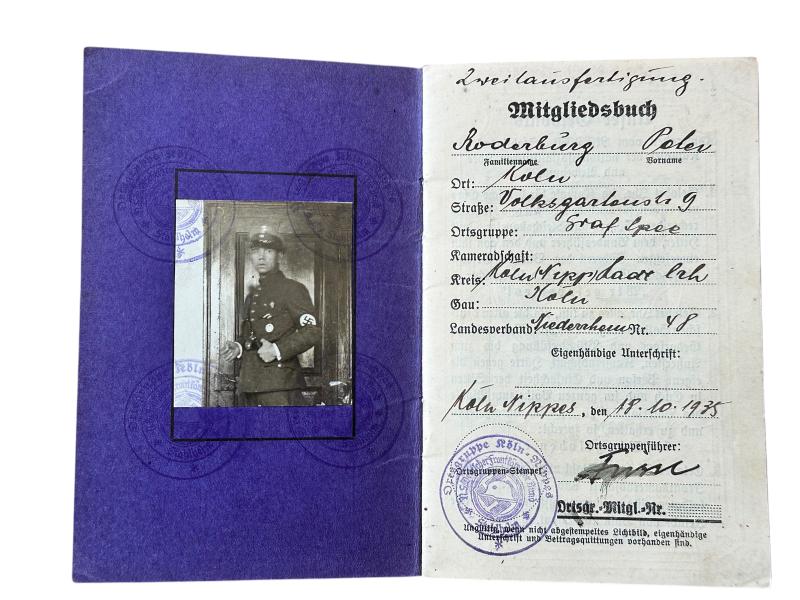 Zweitausfertigung.
Mitgliedsbuch
Roderburg Peter
Familienname Vorname
Ort: Köln
Straße: Volksgartenstr 9
Ortsgruppe: Graf Spee
Kameradschaft:
Kreis: Köln Nipp, Stadt
Gau: Köln
Landesverband: Niederrhein Nr. 48
Eigenhändige Unterschrift:
Köln Nippes, den 18.10.1935
Ortsgruppenführer:
Ortsgruppen-Stempel
Ortsgruppe Köln-Nippes
Stahlhelm
Ortsgr.-Mitgl.-Nr.
Ungültig, wenn nicht abgestempeltes Lichtbild, eigenhändige
Unterschrift und Beitragsquittungen vorhanden sind.